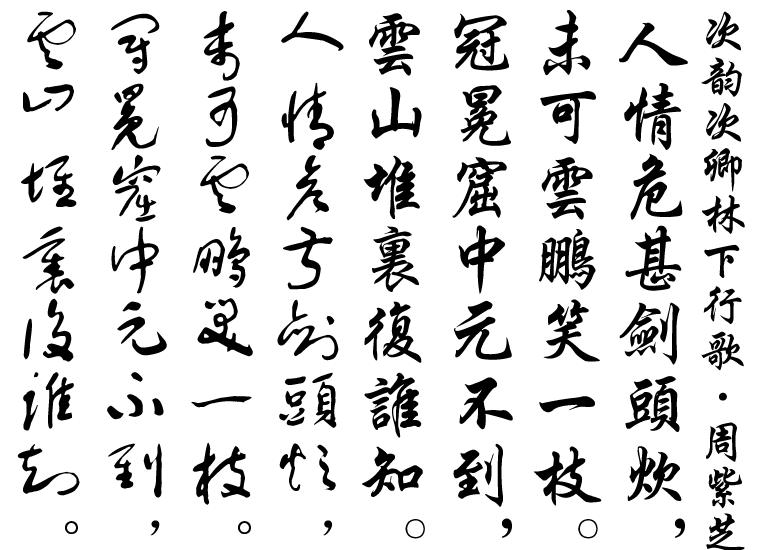 次韵次卿林下行歌·周紫芝
人情危甚劍頭炊，
未可雲鵬笑一枝。
冠冕窟中元不到，
雲山堆裏復誰知。
人情危甚劍頭炊，
未可雲鵬笑一枝。
冠冕窟中元不到，
雲山堆裏復誰知。